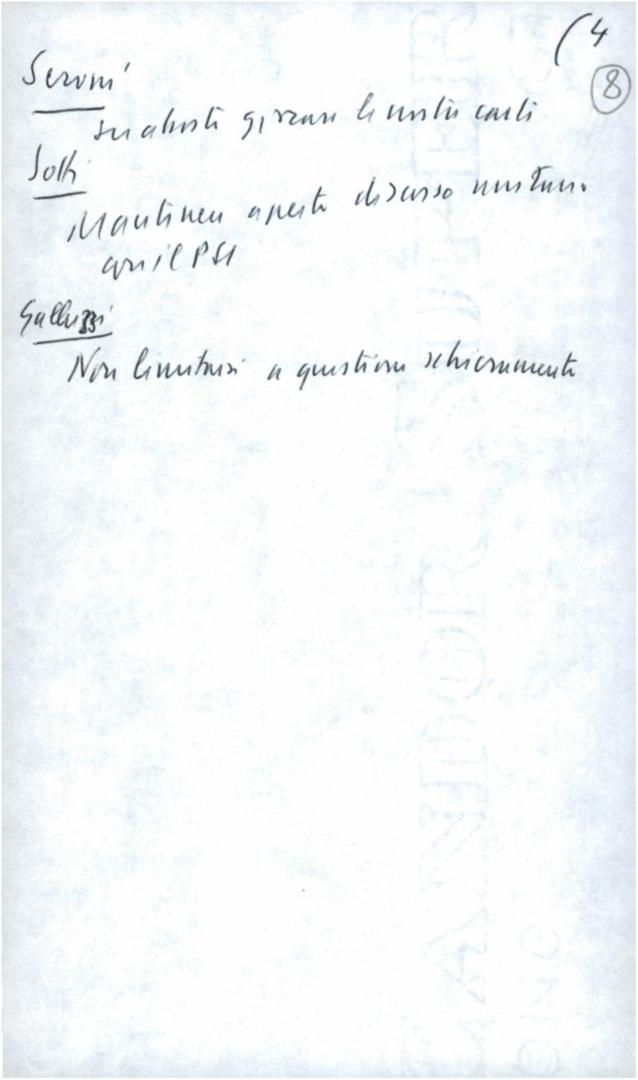 (4
8
Seroni
su aborto giocare le nostre carte
Sotti
Mantenere aperto discorso unitario
con il PSI
Galluzzi
Non limitarsi a questione schieramento